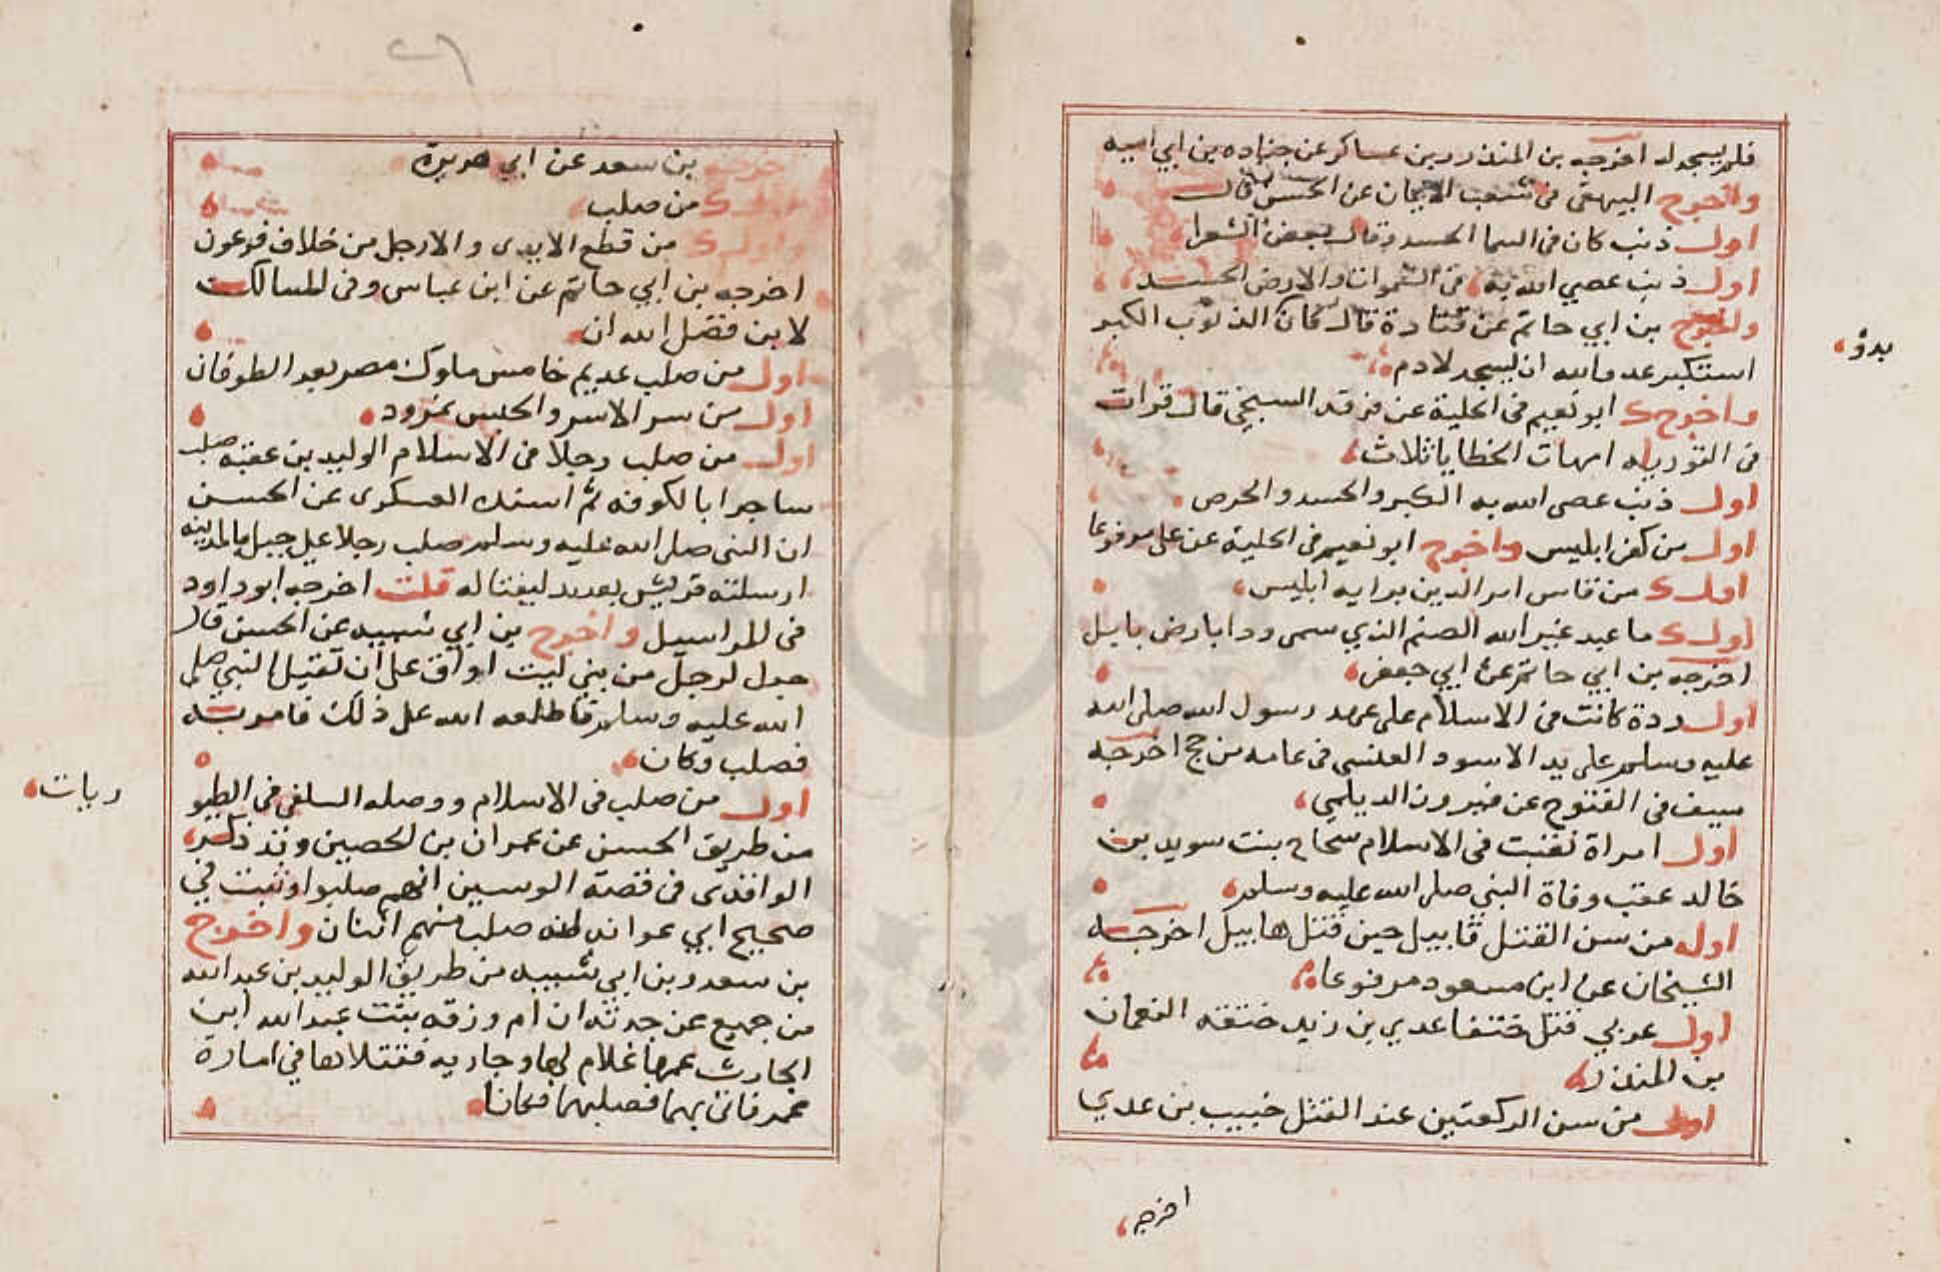 فلم يسجد له اخرجه بن المنذر وبن عساكر عن جناده بن ابي اميه
واخرج البيهقى فى شعب الايمان عن الحسن قال
اول ذنب كان فى السما الحسد وقال بعض الشعرا
اول ذنب عصي الله به فى السموات والارض الحسد
واخرج بن ابي حاتم عن قتادة قال كان الذنوب الكبر
استكبر عدو الله ان يسجد لادم
بدؤ
واخرج ابو نعيم فى الحلية عن فرقد السبخي قال قرات
فى التورياه امهات الخطايا ثلاث
اول ذنب عصى الله به الكبر والحسد والحرص
اول من كفر ابليس واخرج ابو نعيم فى الحلية عن على مرفوعا
اول من قاس امر الدين برايه ابليس
اول ما عبد غير الله الصنم الذي سمى ودا بارض بابل
اخرجه بن ابي حاتم عن ابي جعفر
اول ردة كانت فى الاسلام على عهد رسول الله صلى الله
عليه وسلم على يد الاسود العنسى فى عامه من حج اخرجه
سيف فى الفتوح عن فيروز الديلمي
اول امراة تنبت فى الاسلام سجاح بنت سويد بن
خالد عقب وفاة النبي صلى الله عليه وسلم
اول من سن القتل قابيل حين قتل هابيل اخرجه
الشيخان عن ابن مسعود مرفوعا
اول عربي قتل خنقا عدي بن زيد خنقه النعمان
بن المنذر
اول من سن الركعتين عند القتل خبيب بن عدي
اخرجه
اخرجه بن سعد عن ابي هريرة
من صلب
واول من قطع الايدى والارجل من خلاف فرعون
اخرجه بن ابي حاتم عن ابن عباس وفى المسالك
لابن فضل الله ان
اول من صلب عديم خامس ملوك مصر بعد الطوفان
اول من سر الاسر والحبس نمرود
اول من صلب رجلا فى الاسلام الوليد بن عقبة صلب
ساحرا بالكوفه ثم اسند العسكرى عن الحسن
ان النبى صلى الله عليه وسلم صلب رجلا على جبل بالمدينه
ارسلته قريش بعد بدر ليغتاله قلت اخرجه ابو داود
فى المراسيل واخرج بن ابي شيبه عن الحسن قال
جعل لرجل من بني ليث اواق على ان تقتيل النبي صلى
الله عليه وسلم فاطلعه الله على ذلك فامر به
فصلب وكان
اول من صلب فى الاسلام ووصله السلفى فى الطيو
ريات
من طريق الحسن عن عمران بن الحصين وقد ذكر
الواقدى فى قصة انهم صلبوا وثبت في
صحيح ابي عوانه انه صلب منهم اثنان واخرج
بن سعد وبن ابي شيبه من طريق الوليد بن عبد الله
من جميع عن جدته ان ام ورقه بنت عبد الله ابن
الحارث غمها غلام لها وجاريه فقتلاها في امارة
عمر فاتى بهما فصلبهما فكانا